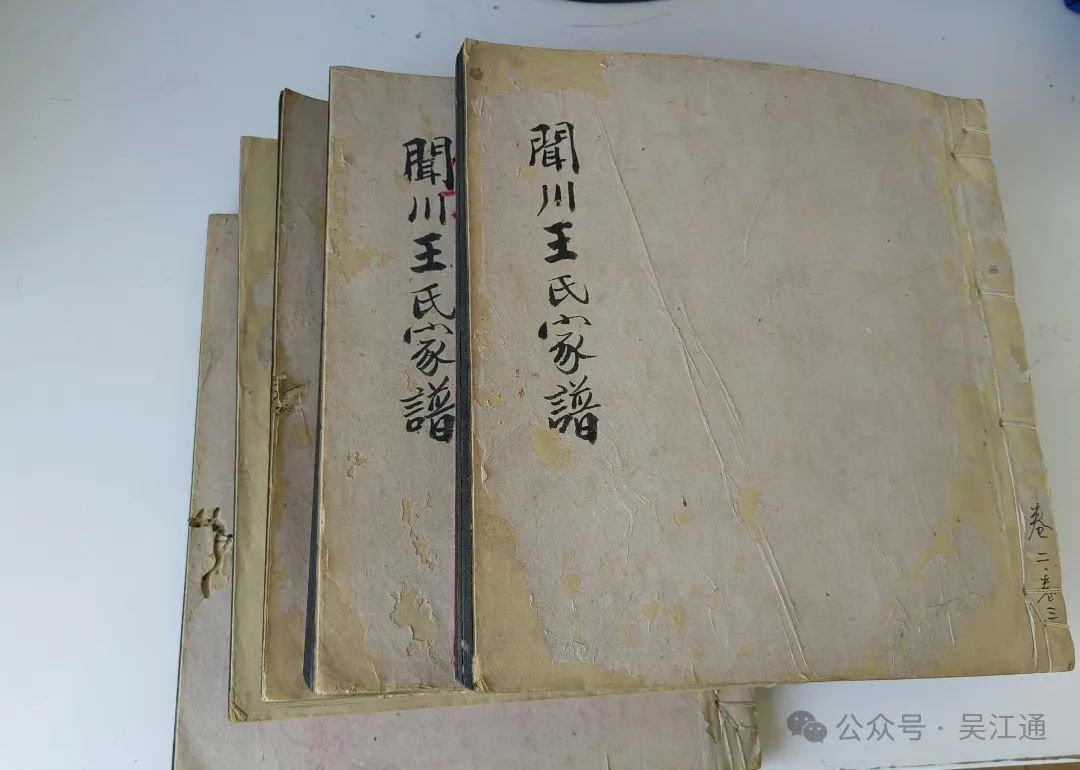 聞川王氏家譜
聞川王氏家譜
卷二、卷三
公众号·吴江通